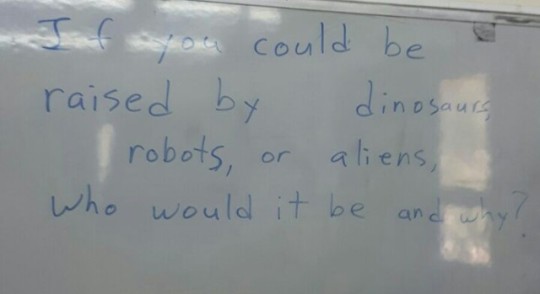 If you could be
raised by dinosaurs,
robots, or aliens,
who would it be and why?